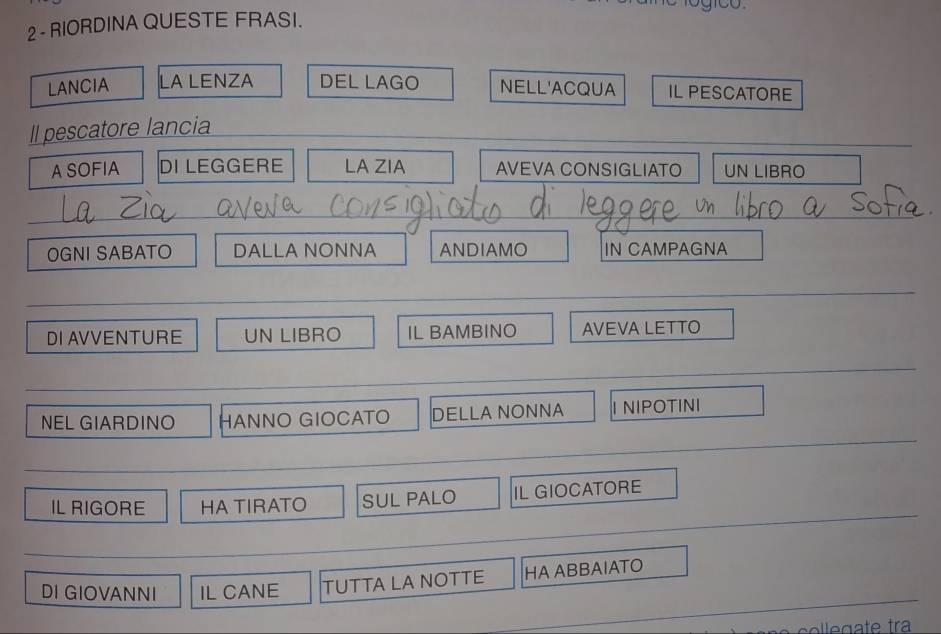 2 - RIORDINA QUESTE FRASI.
LANCIA LA LENZA DEL LAGO NELL'ACQUA IL PESCATORE
Il pescatore lancia
A SOFIA DI LEGGERE LA ZIA AVEVA CONSIGLIATO UN LIBRO
La zia aveva consigliato di leggere un libro a Sofia.
OGNI SABATO DALLA NONNA ANDIAMO IN CAMPAGNA
DI AVVENTURE UN LIBRO IL BAMBINO AVEVA LETTO
NEL GIARDINO HANNO GIOCATO DELLA NONNA I NIPOTINI
IL RIGORE HA TIRATO SUL PALO IL GIOCATORE
DI GIOVANNI IL CANE TUTTA LA NOTTE HA ABBAIATO
collegate tra